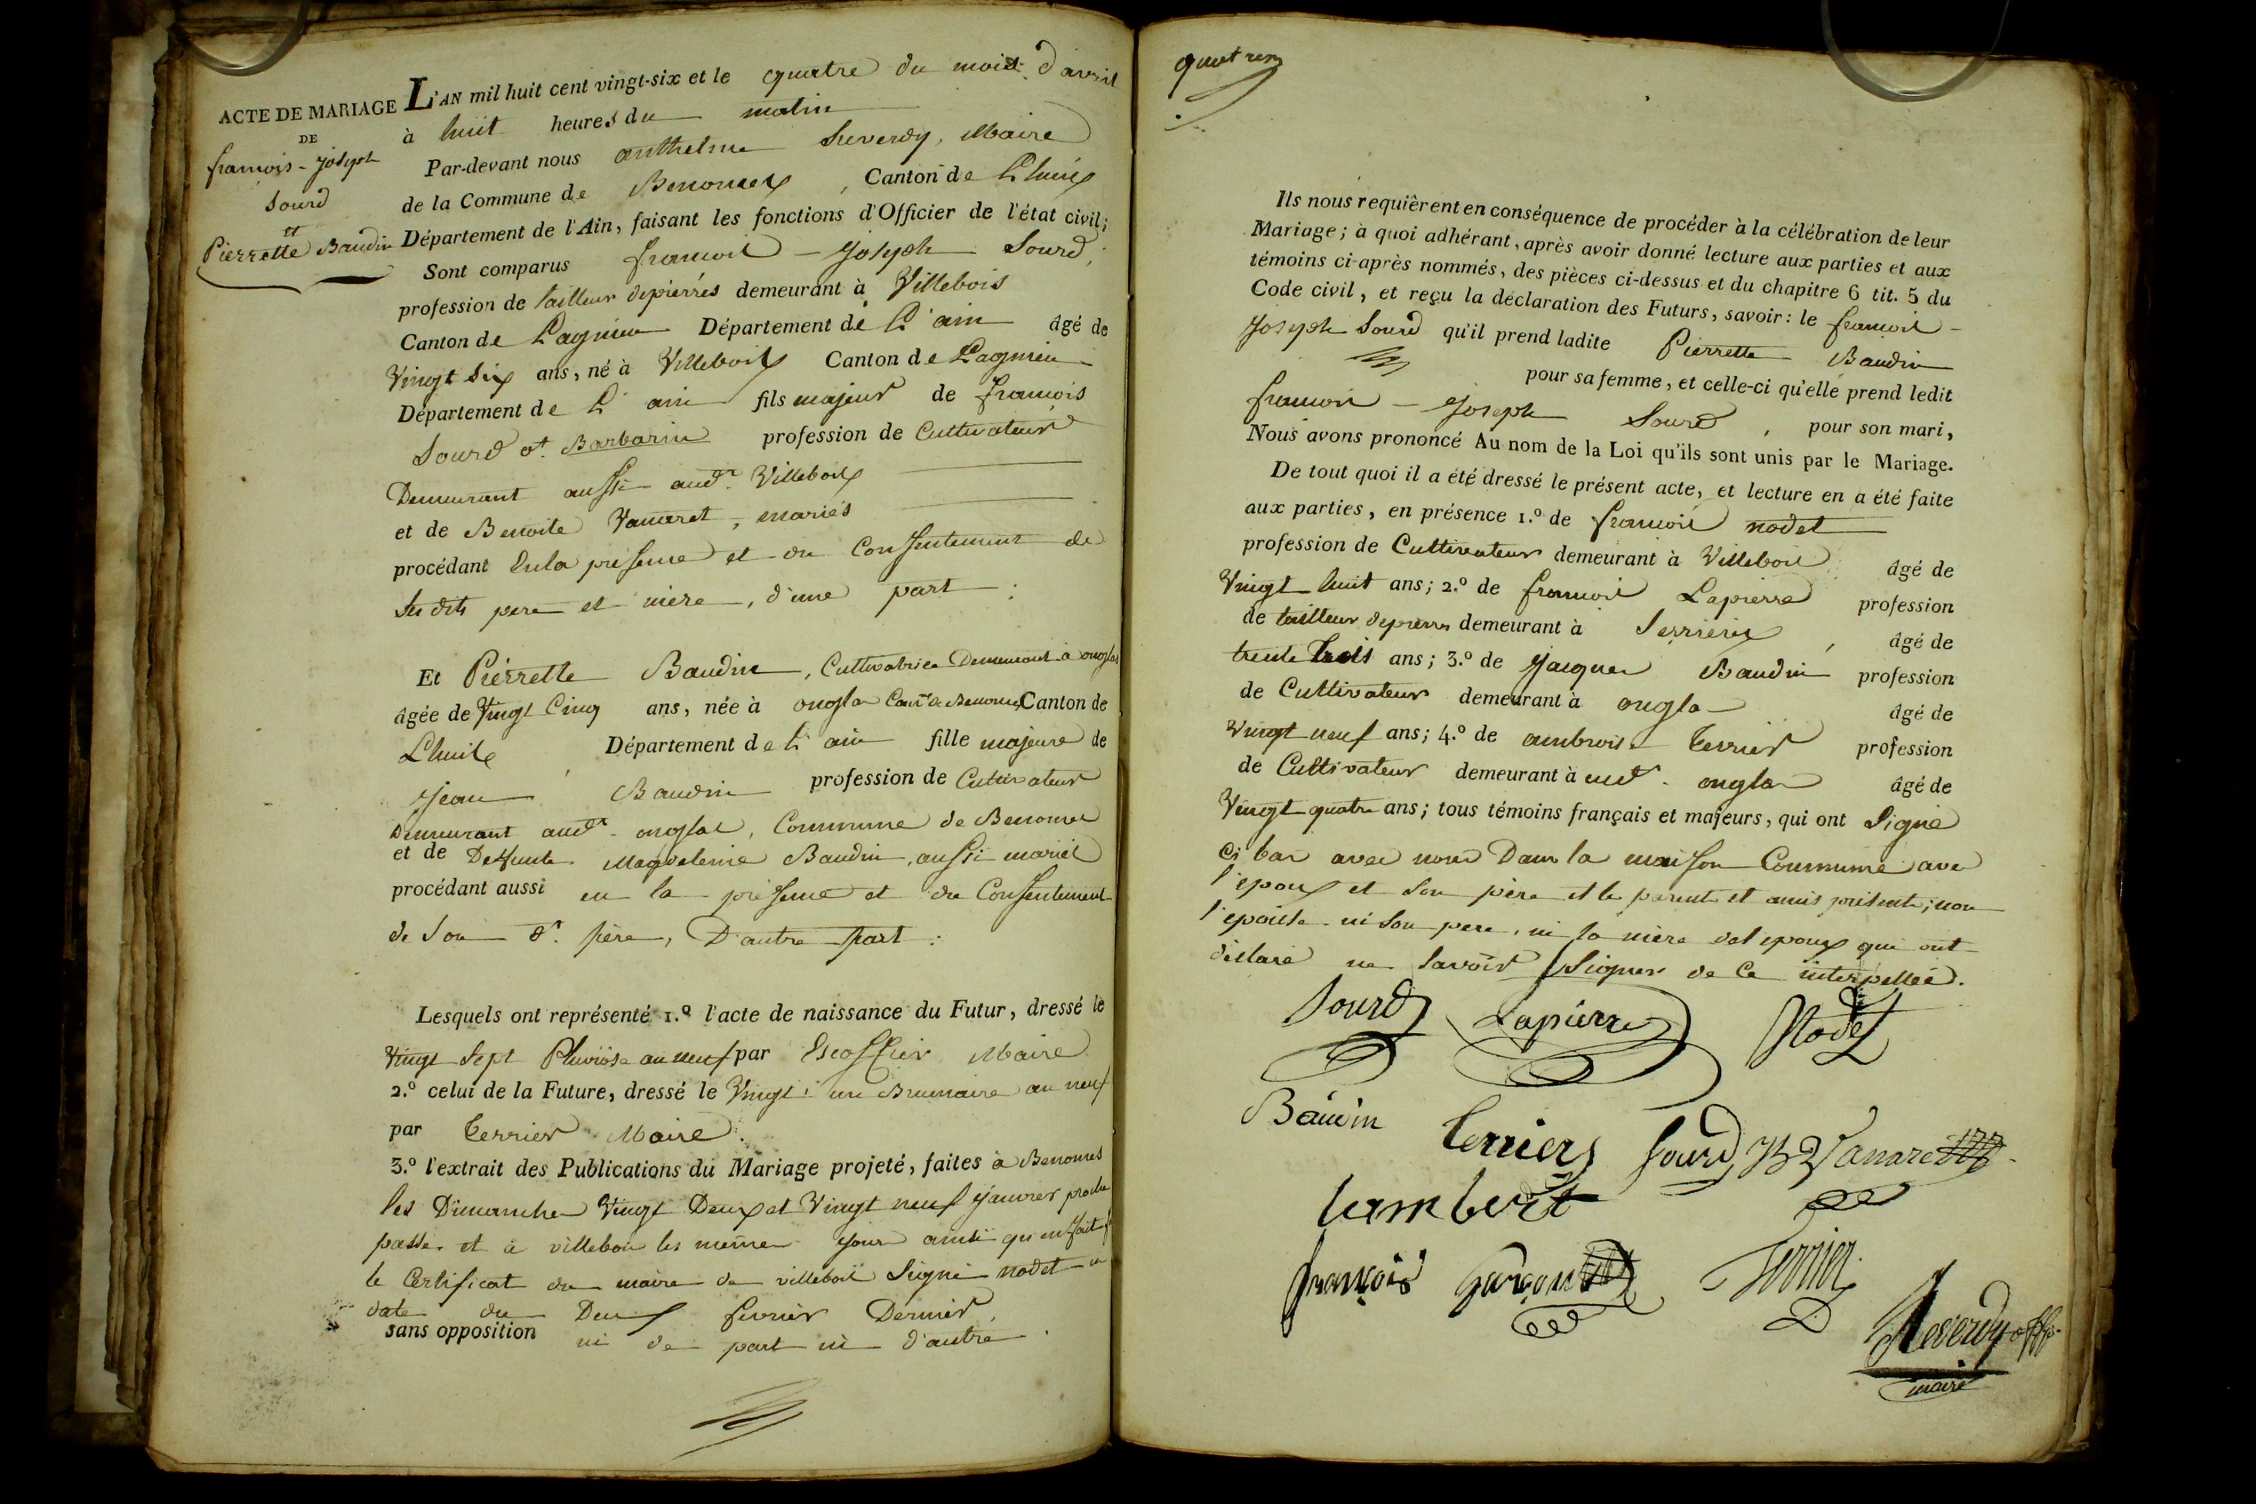 ACTE DE MARIAGE
DE
françois - joseph
Sourd
et
Pierrette Baudin
L'AN mil huit cent vingt-six et le quatre du mois d'avril
à huit heures du matin
Par-devant nous anthelme Reverdy, Maire
de la Commune de Benonces, Canton de Lhuis
Département de l'Ain, faisant les fonctions d'Officier de l'état civil;
Sont comparus francois - joseph Sourd,
profession de tailleur depierres demeurant à Villebois
Canton de Lagnieu Département de L'ain âgé de
Vingt Six ans, né à Villebois Canton de Lagnieu
Département de L'ain fils majeur de françois
Sourd dt. Barbarin profession de Cultivateur
Demeurant aussi audt. Villebois
et de Benoite Vanaret, mariés
procédant Enla presence et du Consentement de
Sesdits pere et mere, d'une part :
Et Pierrette Baudin, Cultivatrice Demeurant à onglas
âgée de Vingt Cinq ans, née à onglas Comne de Benonces Canton de
Lhuis, Département de L'ain fille majeure de
jean Baudin profession de Cultivateur
Demeurant audt. onglas, Commune de Benonces
et de Defunte Magdeleine Baudin, aussi mariés
procédant aussi en la présence et du Consentement
de Son dt. père, D'autre part :
Lesquels ont représenté 1.º l'acte de naissance du Futur, dressé le
Vingt Sept Pluviose an neuf par Escoffier Maire
2.º celui de la Future, dressé le Vingt un Brumaire an neuf
par Terrier Maire.
3.º l'extrait des Publications du Mariage projeté, faites à Benonces
les Dimanches Vingt Deux et Vingt neuf janvier proche
passé et à villebois les mêmes jours ainsi qu'en fait f
le Certificat du maire de villebois Signé nodet en
date du Deux fevrier Dernier,
sans opposition ni de part ni d'autre.
quatre
Ils nous requièrent en conséquence de procéder à la célébration de leur
Mariage; à quoi adhérant, après avoir donné lecture aux parties et aux
témoins ci-après nommés, des pièces ci-dessus et du chapitre 6 tit. 5 du
Code civil, et reçu la déclaration des Futurs, savoir: le francois -
Joseph Sourd qu'il prend ladite Pierrette Baudin
pour sa femme, et celle-ci qu'elle prend ledit
francois - Joseph Sourd, pour son mari,
Nous avons prononcé Au nom de la Loi qu'ils sont unis par le Mariage.
De tout quoi il a été dressé le présent acte, et lecture en a été faite
aux parties, en présence 1.º de francois nodet
profession de Cultivateur demeurant à Villebois âgé de
Vingt huit ans; 2.º de francois Lapierre profession
de tailleur depierres demeurant à Serrieres, âgé de
trente trois ans; 3.º de jacques Baudin profession
de Cultivateur demeurant à onglas âgé de
Vingt neuf ans; 4.º de ambroise Terrier profession
de Cultivateur demeurant à audt. onglas âgé de
Vingt quatre ans; tous témoins français et majeurs, qui ont Signé
Ci bas avec nous Dans la maison Commune avec
l'epoux et Son père et les parents et amis présents; non
l'epouse ni Son pere, ni la mère del epoux qui ont
déclaré ne Savoir Signer de Ce interpellés.
Sourd Lapierre Nodet
Baudin Terrier Sourd B Vanaret
Lambert
françois garçon Terrier
Reverdy
maire